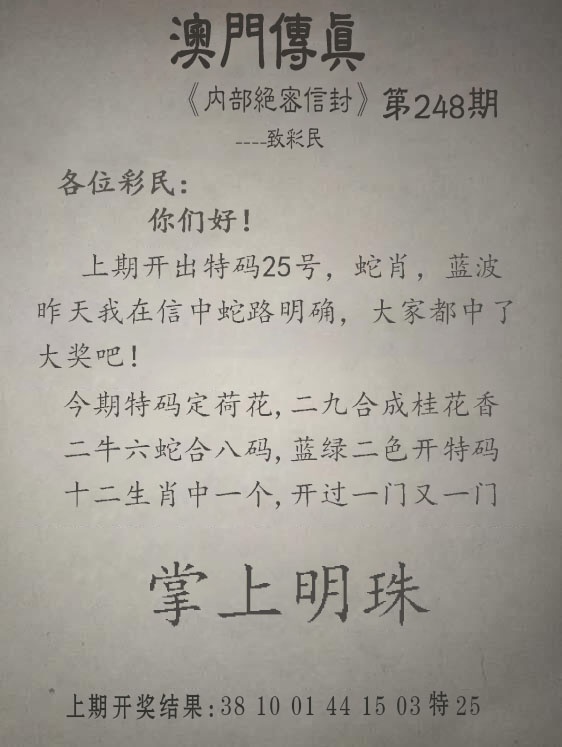 澳門傳眞
《内部絕密信封》第248期
----致彩民
各位彩民：
你们好！
上期开出特码25号，蛇肖，蓝波
昨天我在信中蛇路明确，大家都中了
大奖吧！
今期特码定荷花,二九合成桂花香
二牛六蛇合八码,蓝绿二色开特码
十二生肖中一个,开过一门又一门
掌上明珠
上期开奖结果:38 10 01 44 15 03 特 25